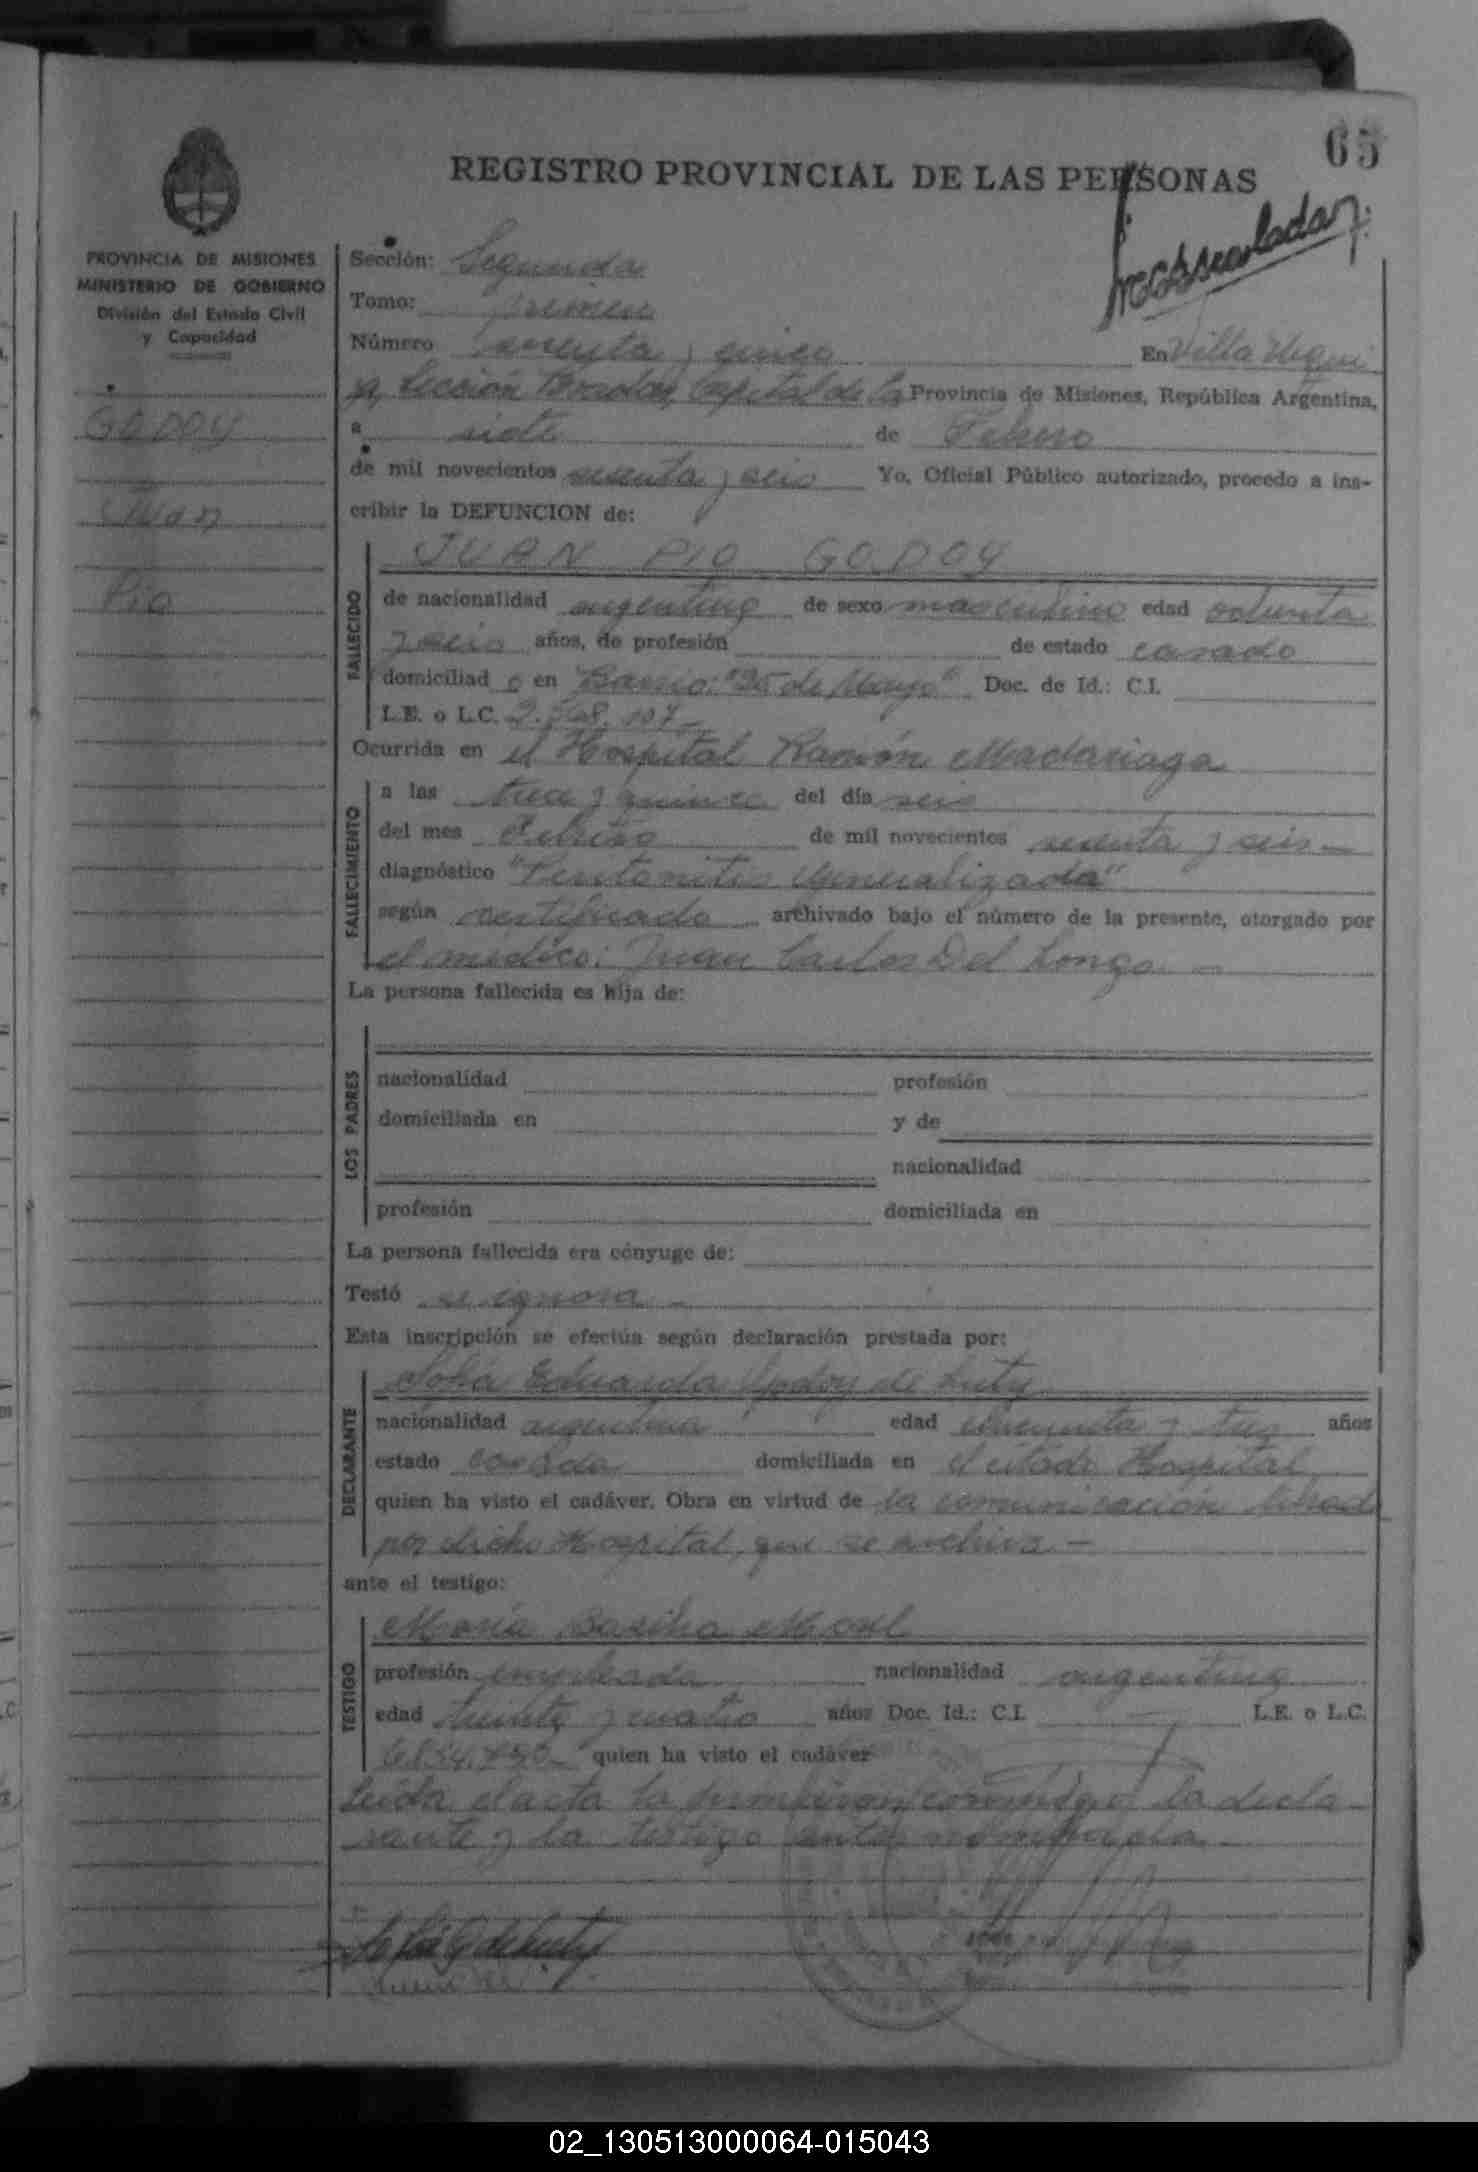 65
REGISTRO PROVINCIAL DE LAS PERSONAS
PROVINCIA DE MISIONES
MINISTERIO DE GOBIERNO
División del Estado Civil
y Capacidad
GODOY
Juan
Pío
Sección: Segunda
Tomo: primero
Número sesenta y cinco En Villa Urqui
za, Sección Capital de la Provincia de Misiones, República Argentina,
a siete de Febrero
de mil novecientos sesenta y seis Yo, Oficial Público autorizado, procedo a ins-
cribir la DEFUNCION de:
JUAN PIO GODOY
FALLECIDO
de nacionalidad argentina de sexo masculino edad ochenta
y seis años, de profesión de estado casado
domiciliad o en Barrio: "25 de Mayo" Doc. de Id.: C.I.
L.E. o L.C.
Ocurrida en el Hospital Ramón Madariaga
FALLECIMIENTO
a las trece y quince del día seis
del mes Febrero de mil novecientos sesenta y seis -
diagnóstico "Peritonitis Generalizada"
según certificado archivado bajo el número de la presente, otorgado por
el médico: Juan Carlos Del Longo. -
La persona fallecida es hija de:
LOS PADRES
nacionalidad profesión
domiciliada en y de
nacionalidad
profesión domiciliada en
La persona fallecida era cónyuge de:
Testó se ignora -
Esta inscripción se efectúa según declaración prestada por:
DECLARANTE
Eduarda Godoy de
nacionalidad argentina edad cincuenta y tres años
estado casada domiciliada en el citado Hospital
quien ha visto el cadáver. Obra en virtud de la comunicación librada
por dicho Hospital, que se archiva -
ante el testigo:
TESTIGO
María
profesión empleada nacionalidad argentina
edad treinta y cuatro años Doc. Id.: C.I. L.E. o L.C.
quien ha visto el cadáver
Leída el acta la firman conmigo la decla-
rante y la testigo
02_130513000064-015043